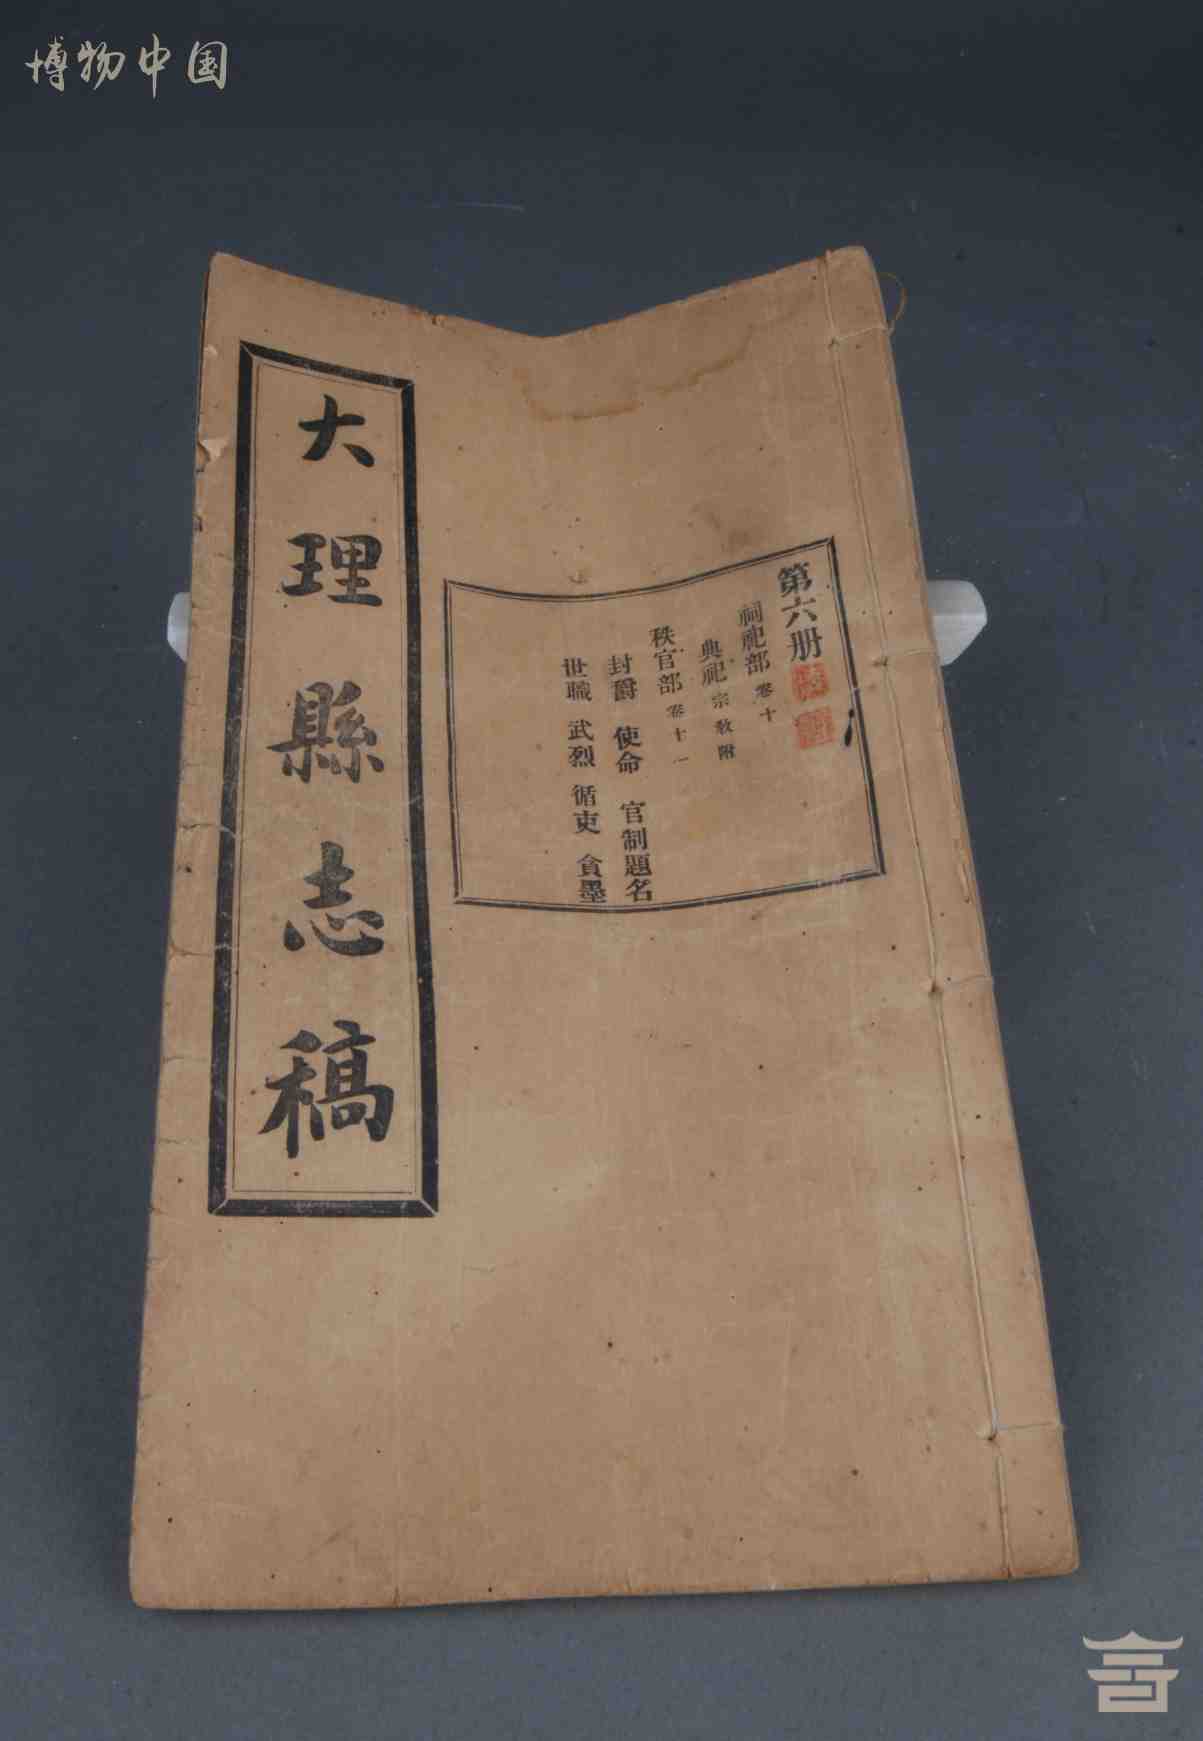 博物中国
大理縣志稿
第六册
祠祀部 卷十
典祀 宗教附
秩官部 卷十一
封爵 使命 官制題名
世職 武烈 循吏 貪墨